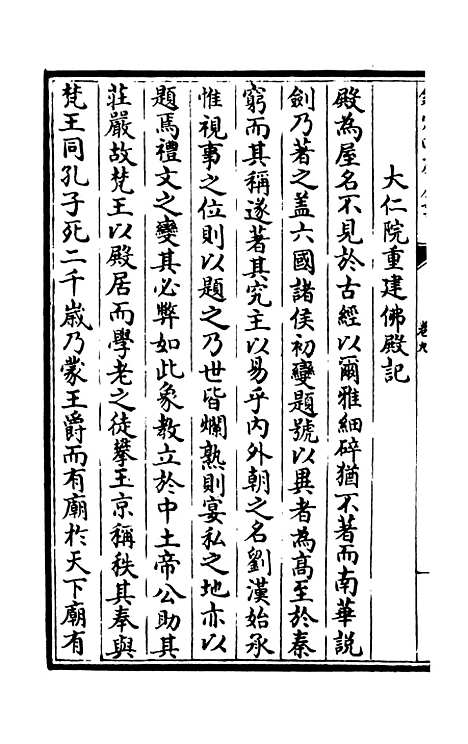 大仁院重建佛殿記
殿為屋名不見於古經以爾雅細碎猶不著而南華說
劍乃著之盖六國諸侯初變題號以異者為髙至於秦
窮而其稱遂著其究主以易乎内外朝之名劉漢始承
惟視事之位則以題之乃世皆爛熟則宴私之地亦以
題焉禮文之變其必弊如此象教立於中土帝公助其
莊嚴故梵王以殿居而學老之徒攀玉京稱秩其奉與
梵王同孔子死二千歲乃蒙王爵而有廟於天下廟有